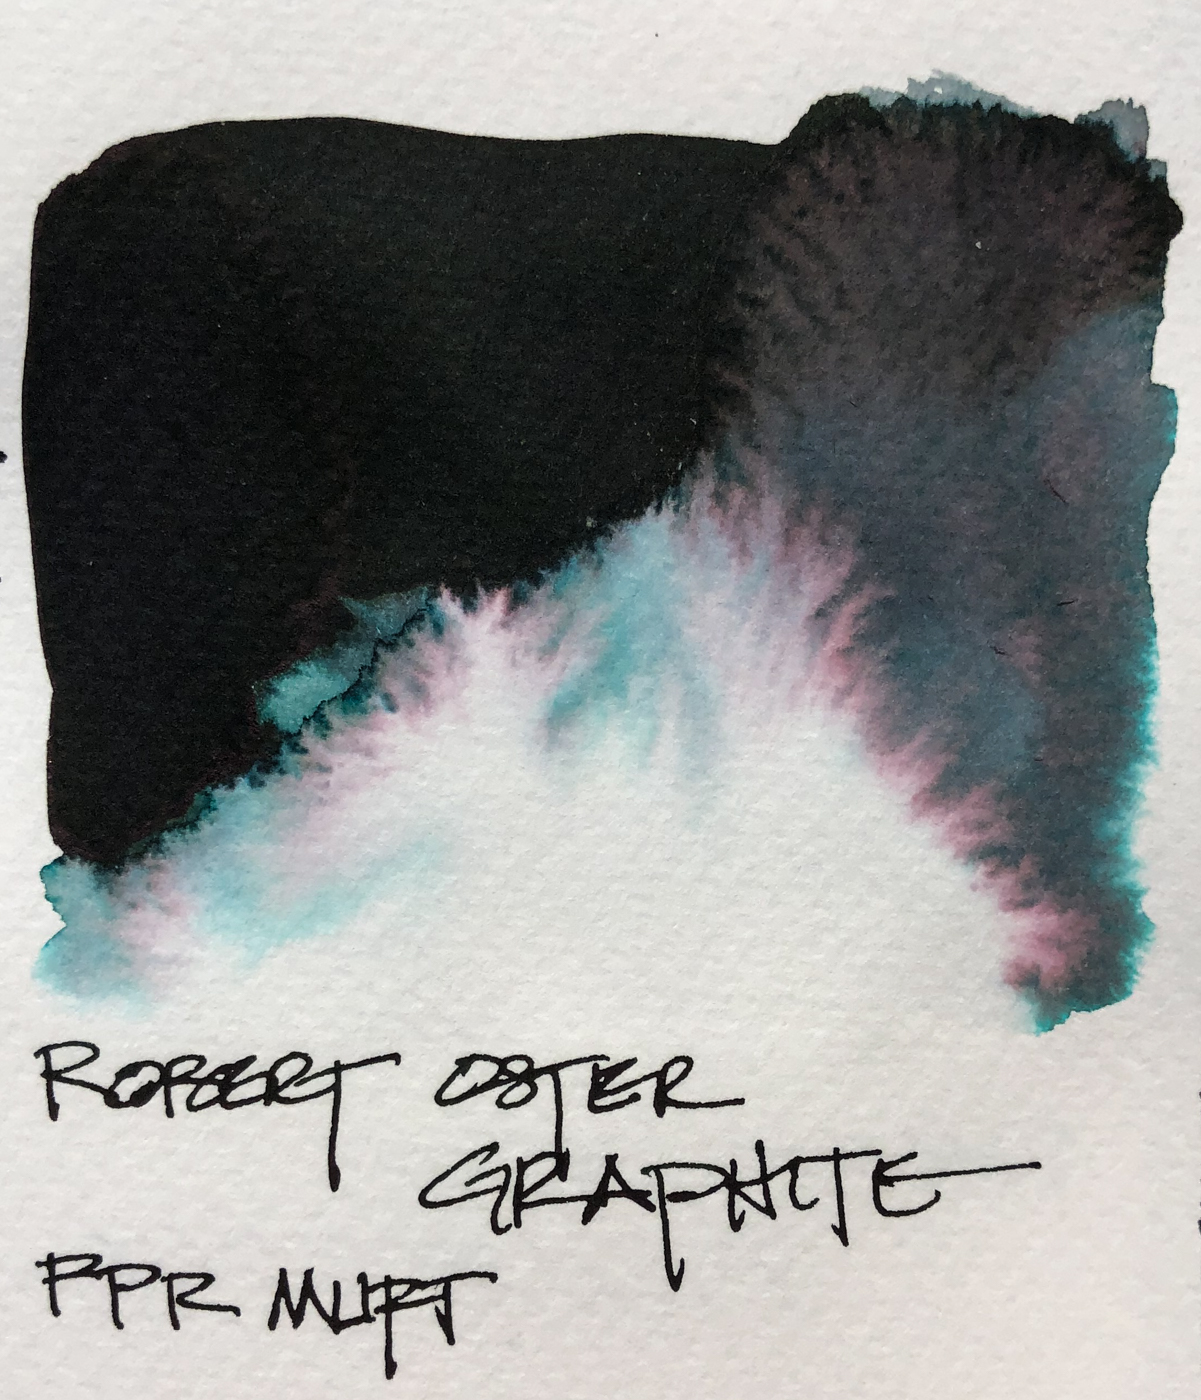 ROBERT OSTER
GRAPHITE
FPR MUFT